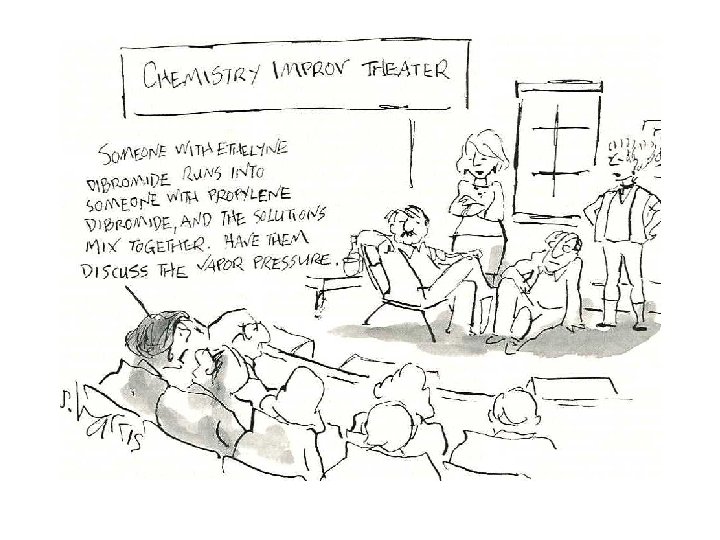 CHEMISTRY IMPROV THEATER
SOMEONE WITH ETHELYNE
DIBROMIDE RUNS INTO
SOMEONE WITH PROPYLENE
DIBROMIDE, AND THE SOLUTIONS
MIX TOGETHER. HAVE THEM
DISCUSS THE VAPOR PRESSURE.
S. HARRIS